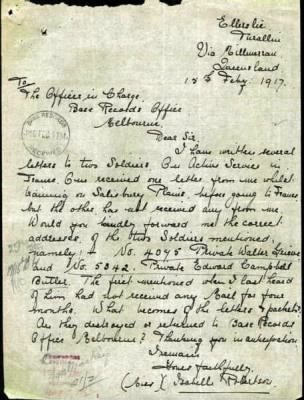 Ellerslie
Turallin
Via Millmerran
Queensland.
18th Feby. 1917.
To
The Officer in Charge,
Base Records Office
Melbourne.
Dear Sir,
I have written several
letters to two Soldiers. On Active Service in
France. One received one letter from me whilst
training on Salisbury Plains, before going to France.
but the other has not received any from me.
Would you kindly forward me the correct
addresses, of the two Soldiers mentioned,
namely:- No. 4375 Private Walter
and No. 5342. Private Edward Campbell
Butler. The first mentioned when I last heard
of him had not received any Mail for four
months. What becomes of the letters & packets?
Are they destroyed or returned to Base Records
Office Melbourne? Thanking you in anticipation
I remain
Yours faithfully,
(Mrs) Isabelle Robertson.